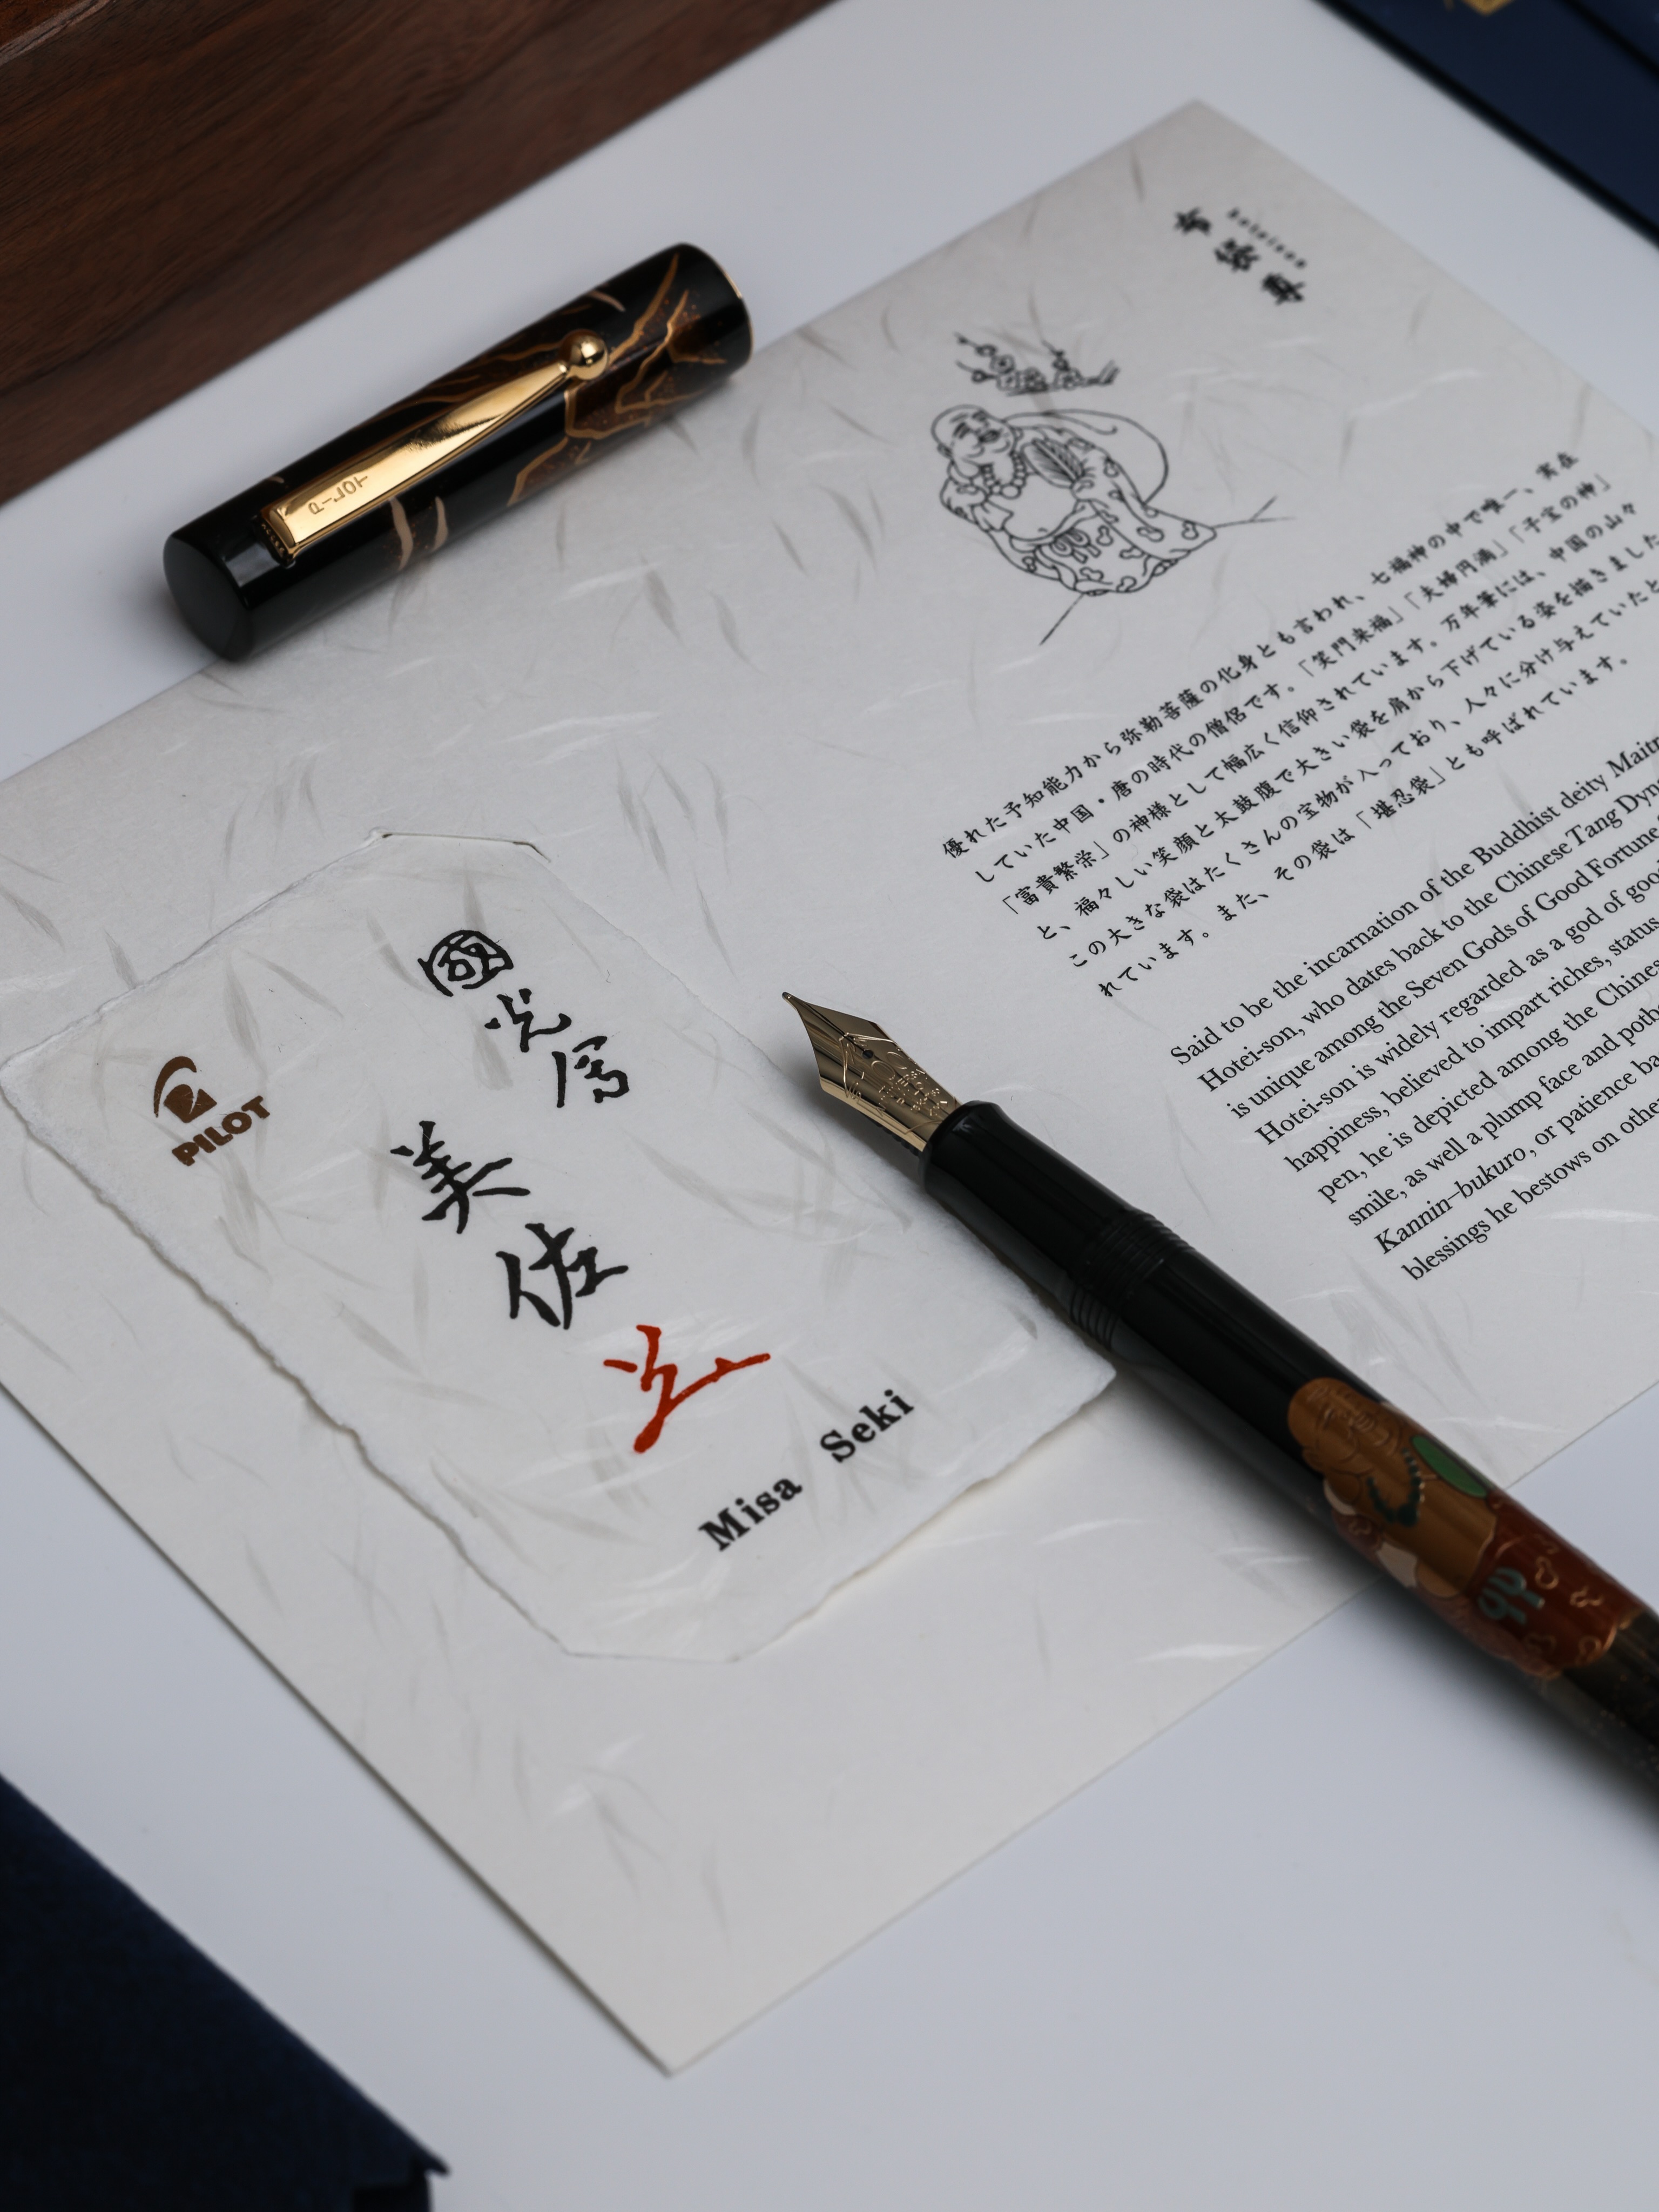 布袋尊
Hoteison
優れた予知能力から弥勒菩薩の化身とも言われ、七福神の中で唯一、実在
していた中国・唐の時代の僧侶です。「笑門来福」「夫婦円満」「子宝の神」
「富貴繁栄」の神様として幅広く信仰されています。万年筆には、中国の山々
と、福々しい笑顔と太鼓腹で大きい袋を肩から下げている姿を描きました
この大きな袋はたくさんの宝物が入っており、人々に分け与えていたと
れています。また、その袋は「堪忍袋」とも呼ばれています。
Said to be the incarnation of the Buddhist deity Maitr
Hotei-son, who dates back to the Chinese Tang Dyn
is unique among the Seven Gods of Good Fortune
Hotei-son is widely regarded as a god of good
happiness, believed to impart riches, status
pen, he is depicted among the Chines
smile, as well a plump face and potb
Kannin-bukuro, or patience ba
blessings he bestows on othe
PILOT
國光會
美佐
Misa Seki
PILOT